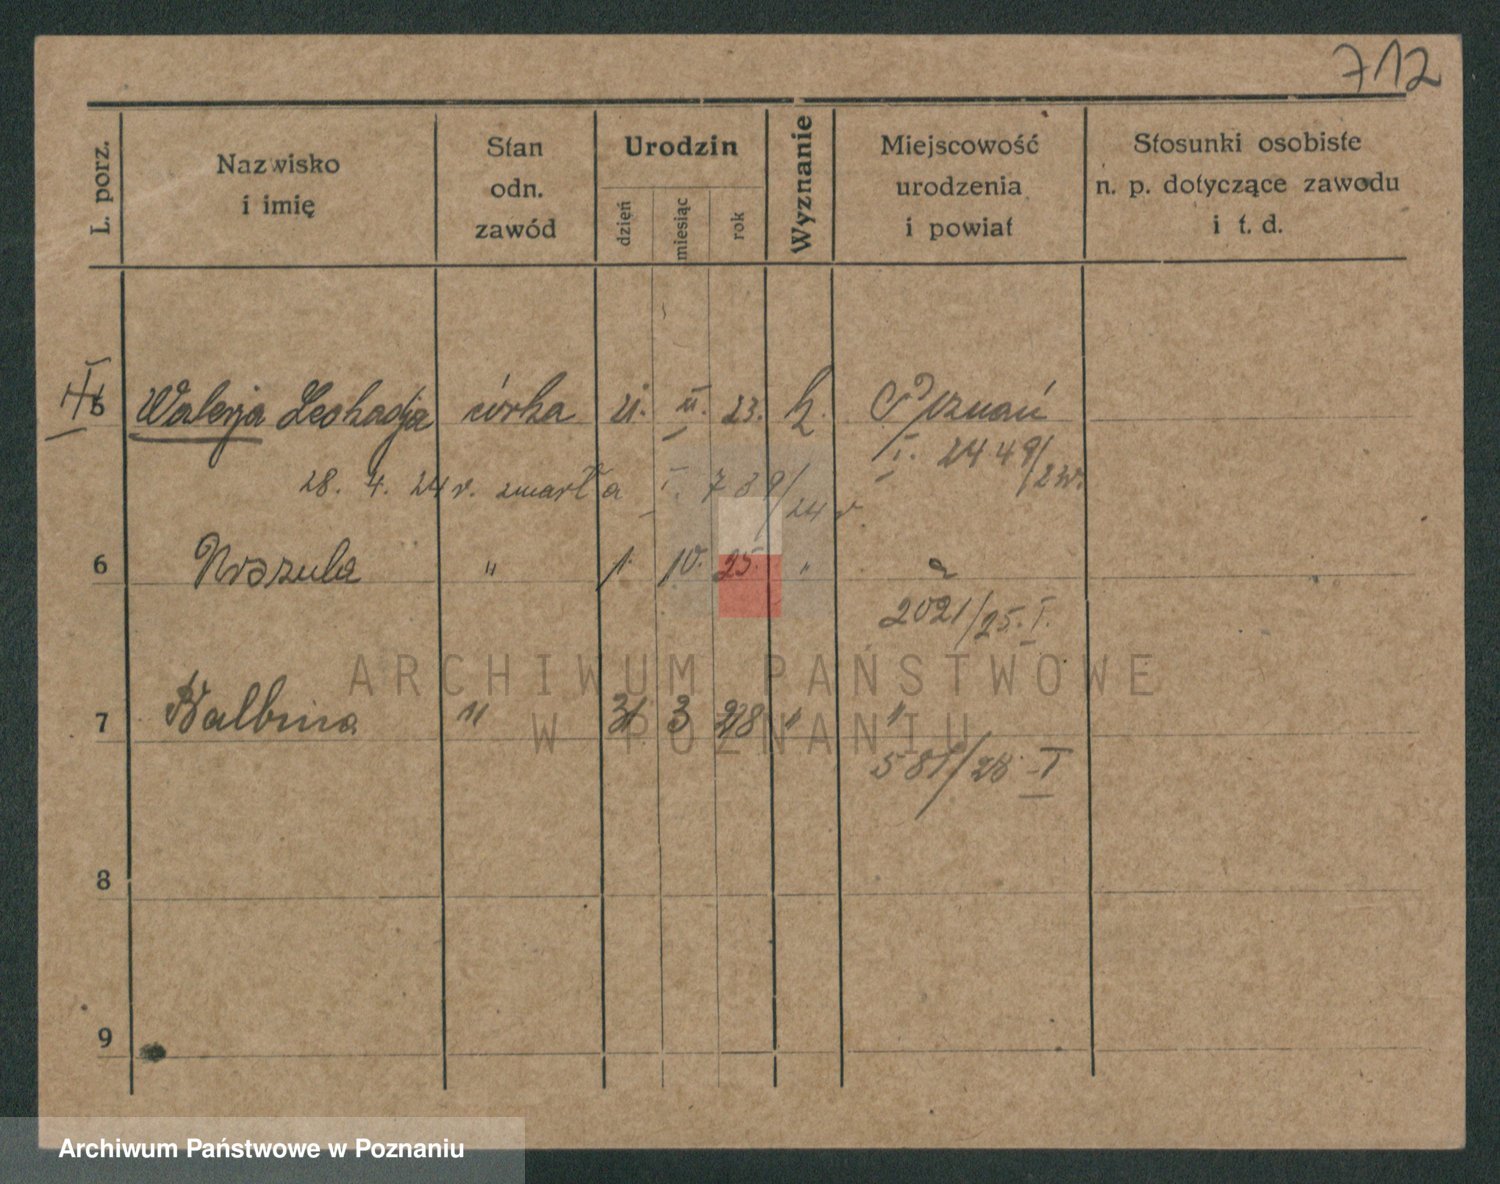 712
L. porz.
Nazwisko
i imię
Stan
odn.
zawód
Urodzin
dzień
miesiąc
rok
Wyznanie
Miejscowość
urodzenia
i powiat
Stosunki osobiste
n. p. dotyczące zawodu
i t. d.
5 Walerja Leokadja córka 21. II. 23. k. Poznań
I. 2449/23r.
28. 4. 24 r. zmarła I. 739/24 r.
6 Urszula " 1. 10. 25. " "
2021/25. I.
7 Balbina " 31 3 28 " "
581/28 I
8
9
ARCHIWUM PAŃSTWOWE
W POZNANIU
Archiwum Państwowe w Poznaniu